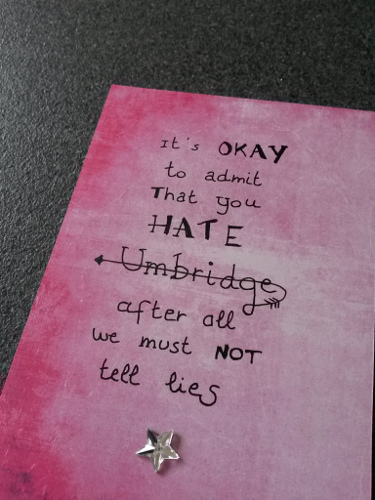 It's OKAY
to admit
That you
HATE
Umbridge
after all
we must NOT
tell lies